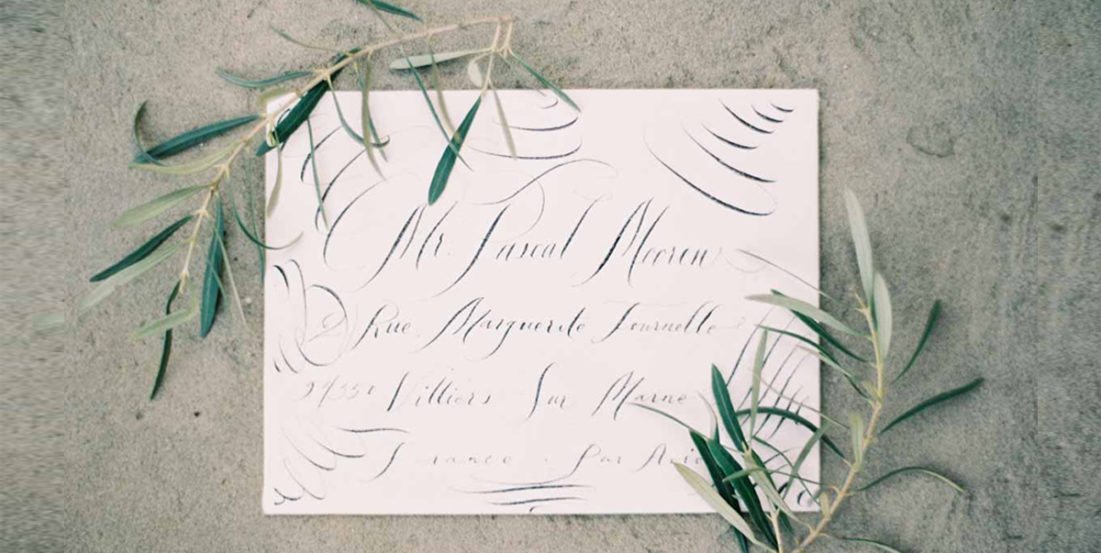 Mr. Pascal Mooren
2 Rue Marguerite Tournelle
94350 Villiers Sur Marne
France . Par Avion